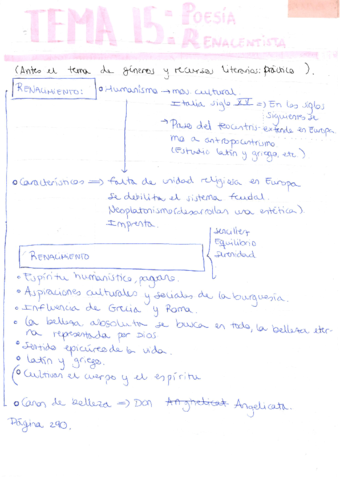 TEMA 15: POESÍA
RENACENTISTA
(Antes el tema de géneros y recursos literarios: práctica).
RENACIMIENTO: • Humanismo → mov cultural
Italia siglo XV => En los siglos
siguientes se
→ Paso del teocentris- extiende en Europa
mo a antropocentrismo
(Estudio latín y griego, etc)
• Características => falta de unidad religiosa en Europa
Se debilita el sistema feudal.
Neoplatonismo (desarrollan una estética)
Imprenta.
Sencillez
Equilibrio
Serenidad
RENACIMIENTO
• Espíritu humanístico, pagano.
• Aspiraciones culturales y sociales de la burguesía.
• Influencia de Grecia y Roma.
• La belleza absoluta se busca en todo, la belleza eter-
na representada por Dios
• Sentido epicúreo de la vida.
• Latín y griego.
• Cultivan el cuerpo y el espíritu
• Canon de belleza => Don Angelicata.
Página 290.